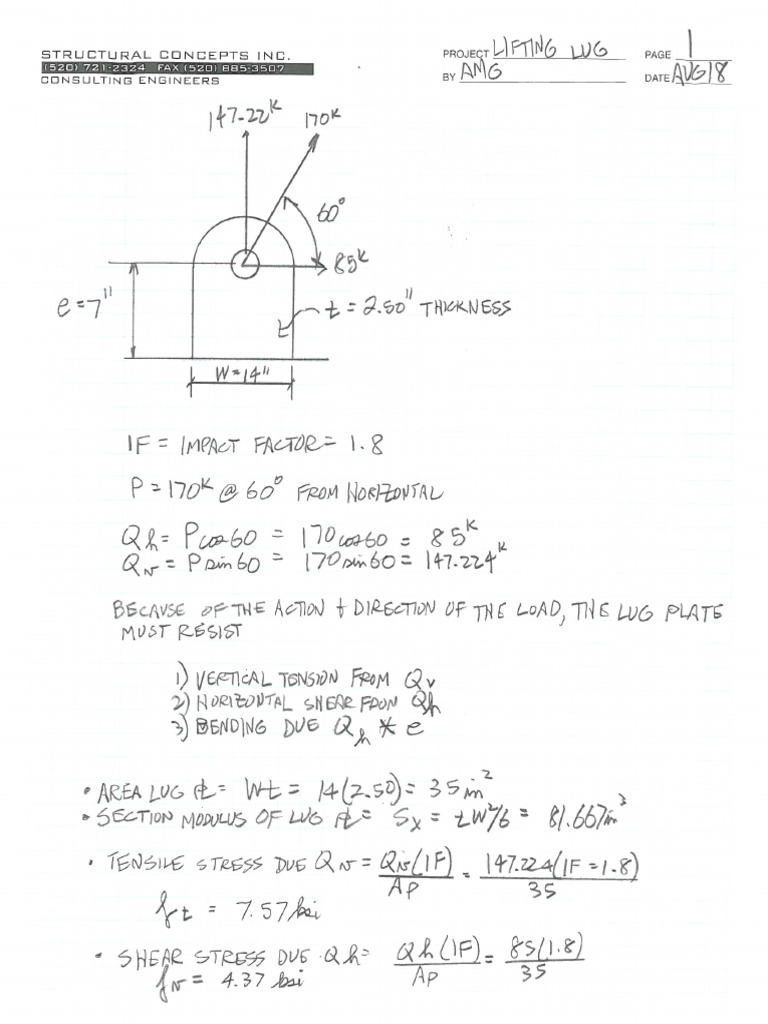 STRUCTURAL CONCEPTS INC.
(520) 721-2324 FAX (520) 885-3507
CONSULTING ENGINEERS
PROJECT LIFTING LUG
BY AMG
PAGE 1
DATE AUG18
147.22K
170K
60°
85K
e = 7"
t = 2.50" THICKNESS
t
W=14"
IF = IMPACT FACTOR = 1.8
P = 170K @ 60° FROM HORIZONTAL
Qh = Pcos60 = 170cos60 = 85K
Qv = Psin60 = 170sin60 = 147.224K
BECAUSE OF THE ACTION & DIRECTION OF THE LOAD, THE LUG PLATE
MUST RESIST
1) VERTICAL TENSION FROM Qv
2) HORIZONTAL SHEAR FROM Qh
3) BENDING DUE Qh * e
• AREA LUG PL = Wt = 14(2.50) = 35in²
• SECTION MODULUS OF LUG PL = Sx = tW²/6 = 81.667in³
• TENSILE STRESS DUE Qv = Qv(IF)/Ap = 147.224(IF=1.8)/35
ft = 7.57ksi
• SHEAR STRESS DUE Qh = Qh(IF)/Ap = 85(1.8)/35
fv = 4.37 ksi